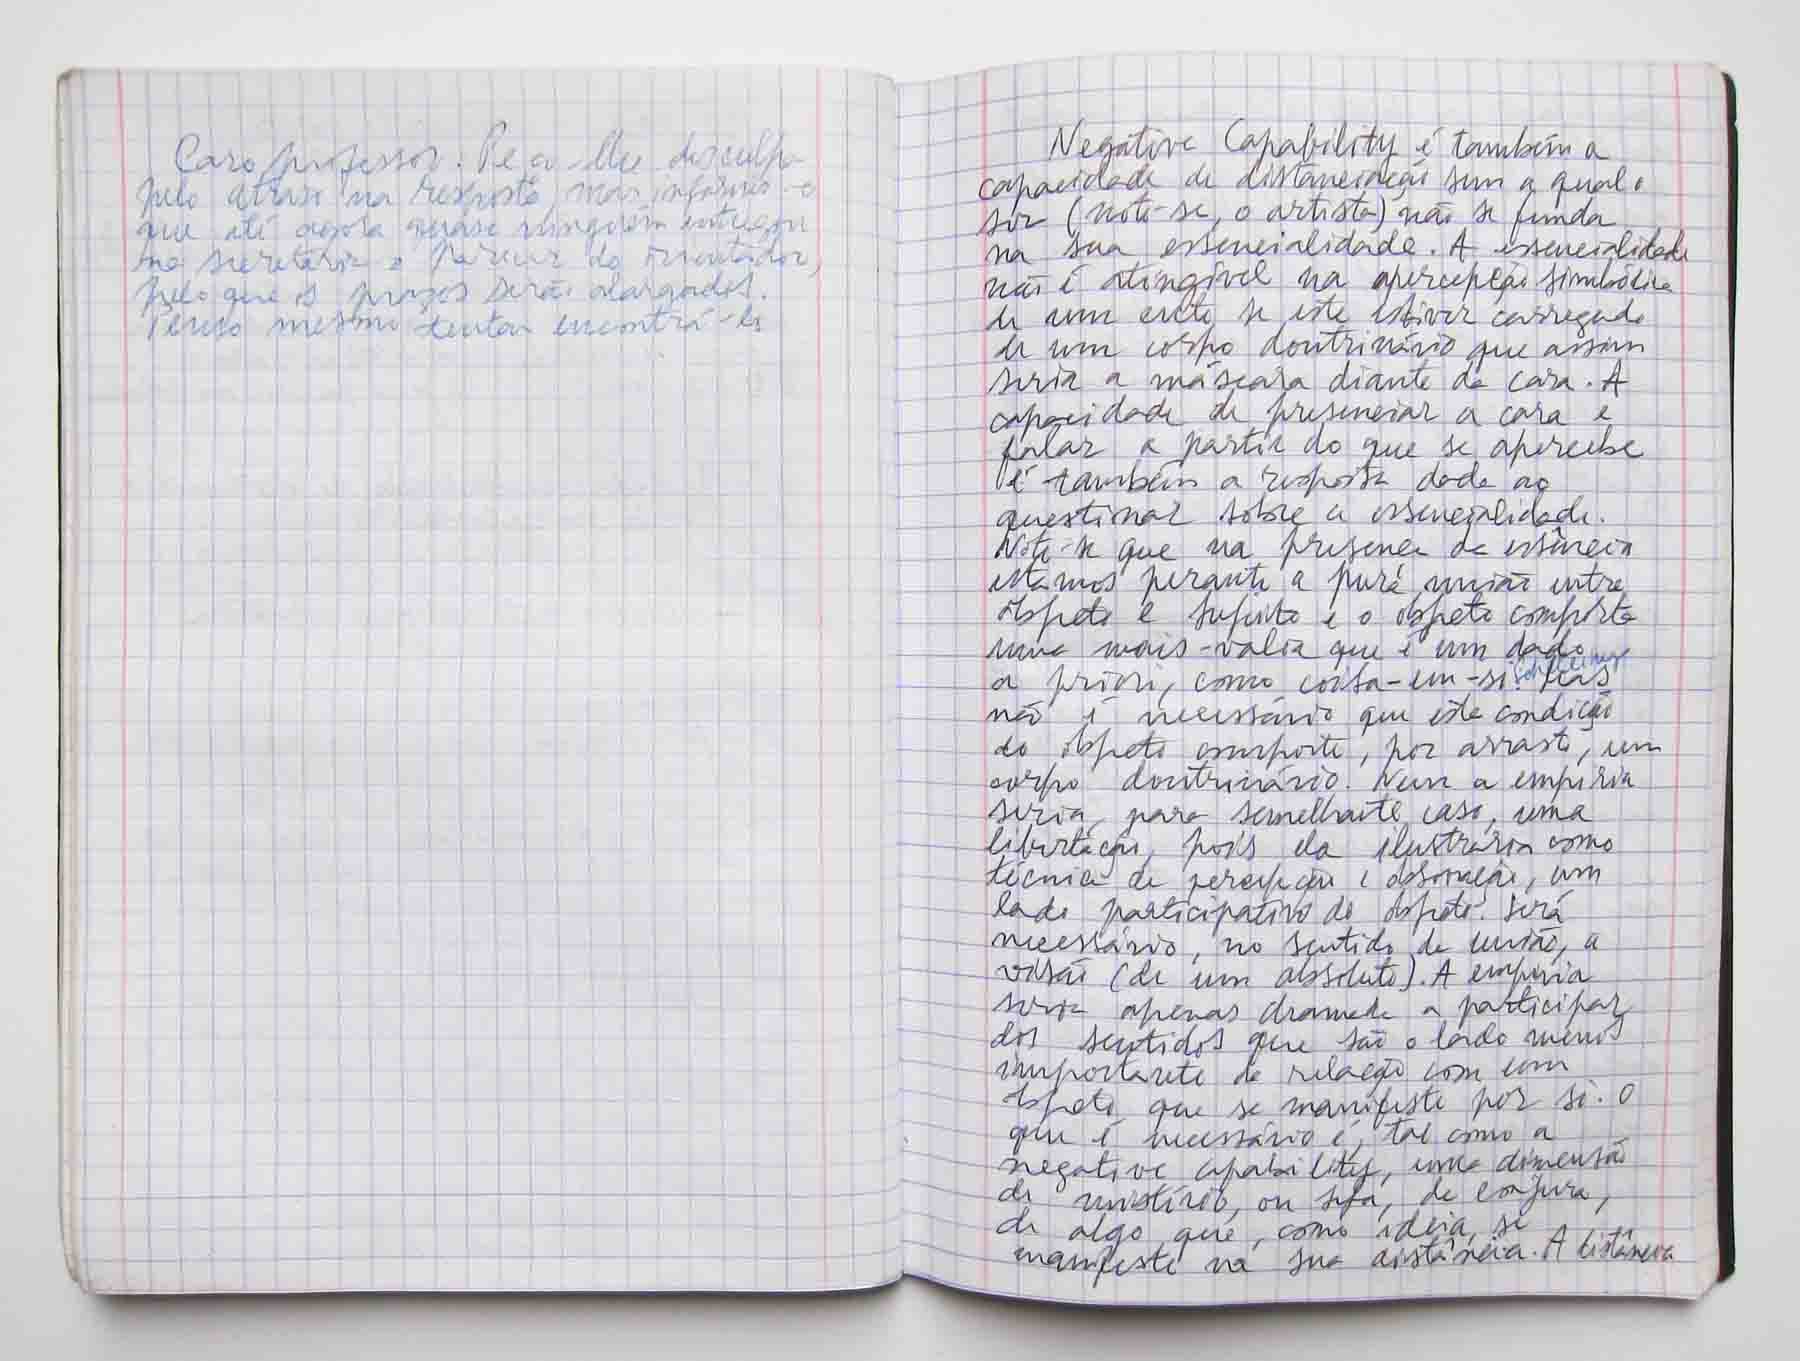 Caro professor. Peço-lhe desculpa
pelo atraso na resposta, mas informo-o
que até agora quase ninguém entregou
na secretaria o Parecer do orientador,
pelo que os prazos serão alargados.
Penso mesmo tentar encontrá-lo
Negative Capability é também a
capacidade de distanciação sem a qual o
ser (note-se, o artista) não se funda
na sua essencialidade. A essencialidade
não é atingível na apercepção simbólica
de um ente se este estiver carregado
de um corpo doutrinário que assim
seria a máscara diante da cara. A
capacidade de presenciar a cara e
falar a partir do que se apercebe
é também a resposta dada ao
questionar sobre a essencialidade.
Note-se que na presença da essência
estamos perante a pura união entre
objeto e sujeito e o objeto comporta
uma mais-valia que é um dado
a priori, como coisa-em-si. Schelling Mas
não é necessário que esta condição
do objeto comporte, por arrasto, um
corpo doutrinário. Nem a empiria
seria, para semelhante caso, uma
libertação, pois ela ilustraria como
técnica de percepção e observação, um
lado participativo do objeto. Será
necessário, no sentido da união, a
visão (de um absoluto). A empiria
seria apenas chamada a participar
dos sentidos que são o lado menos
importante da relação com um
objeto que se manifeste por si. O
que é necessário é, tal como a
negative capability, uma dimensão
de mistério, ou seja, de conjura,
de algo que, como ideia, se
manifeste na sua distância. A distância